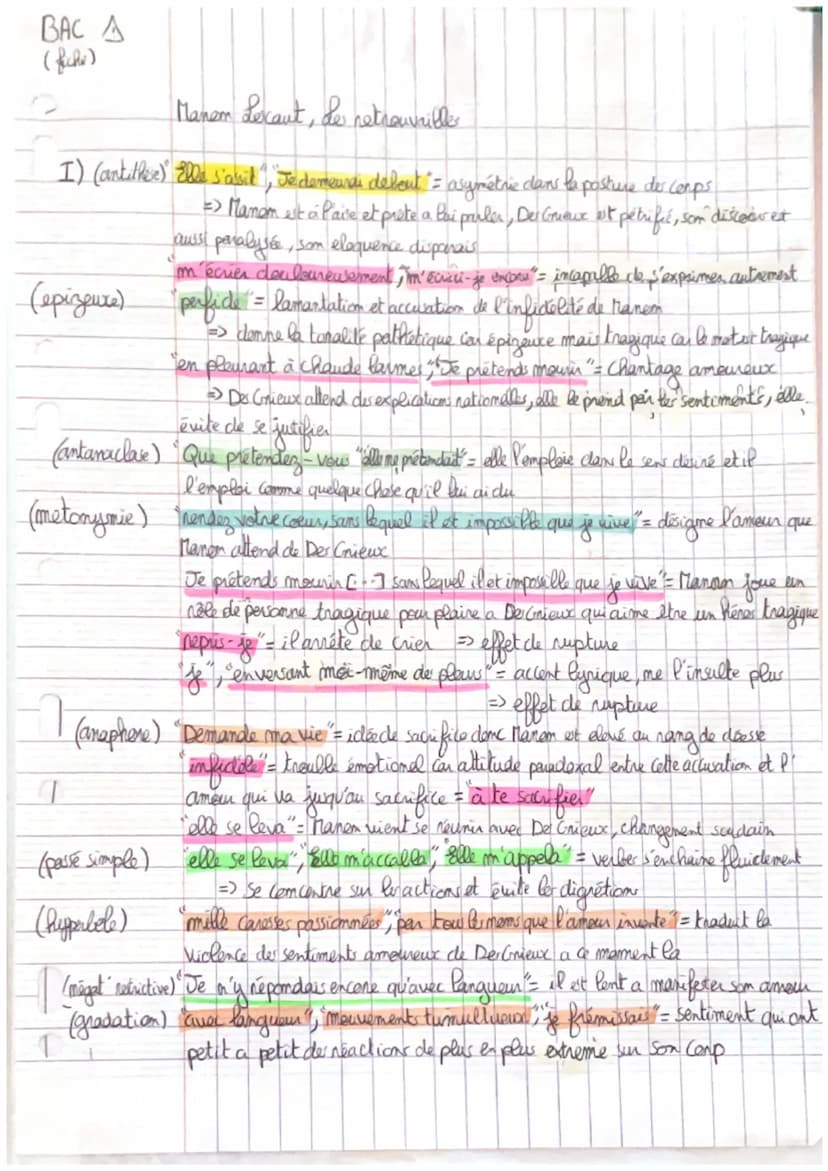 BAC ⚠
(fiche)
Manon Lescaut, Les retrouvailles
I) (antithèse) "Elle s'assit", "Je demeurai debout" = asymétrie dans la posture des corps
=> Manon est à l'aise et prete a lui parler, Des Grieux est pétrifié, son discours est
aussi paralysée, son eloquence disparais
"m'écrier douloureusement", "m'écriai-je encore" = incapable de s'exprimer autrement
(epizeuxe) "perfide" = lamantation et accusation de l'infidélité de Manon
=> donne la tonalité pathétique car épizeuxe mais tragique car le mot est tragique
"en pleurant à chaude larmes", "Je prétends mourir" = Chantage amoureux
=> Des Grieux attend des explications rationnelles, elle le prend par les sentiments, elle
évite de se justifier
(antanaclase) "Que prétendez-vous" "elle ne prétendait" = elle l'emploie dans le sens désiré et il
l'emploi comme quelque chose qu'il lui ai du
(metonymie) "rendez votre coeur, sans lequel il est impossible que je vive" = désigne l'amour que
Manon attend de Des Grieux
"Je prétends mourir [...] sans lequel il est impossible que je vive" = Manon joue un
rôle de personne tragique pour plaire a Des Grieux qui aime être un héros tragique
"repris-je" = il arrête de crier => effet de rupture
"je", "en versant moi-même des pleurs" = accent lyrique, ne l'insulte plus
=> effet de rupture
(anaphore) "Demande ma vie" = idée de sacrifice donc Manon est elevé au rang de déesse
"infidèle" = trouble émotionel car attitude paradoxal entre cette accusation et l'
amour qui va jusqu'au sacrifice = "à te sacrifier"
"elle se leva" = Manon vient se réunir avec Des Grieux, changement soudain
(passé simple) "elle se leva", "Elle m'accabla", "Elle m'appela" = verbes s'enchaine fluidement
=> Se concentre sur les actions et évite les digrétions
(hyperbole) "mille caresses passionnées", "par tous les noms que l'amour invente" = traduit la
violence des sentiments amoureux de Des Grieux a ce moment la
(négat° restrictive) "Je n'y répondais encore qu'avec langueur" = il est lent a manifester son amour
(gradation) "avec langueur", "mouvements tumultueux", "je frémissais" = sentiment qui ont
petit a petit des réactions de plus en plus extreme sur son corp